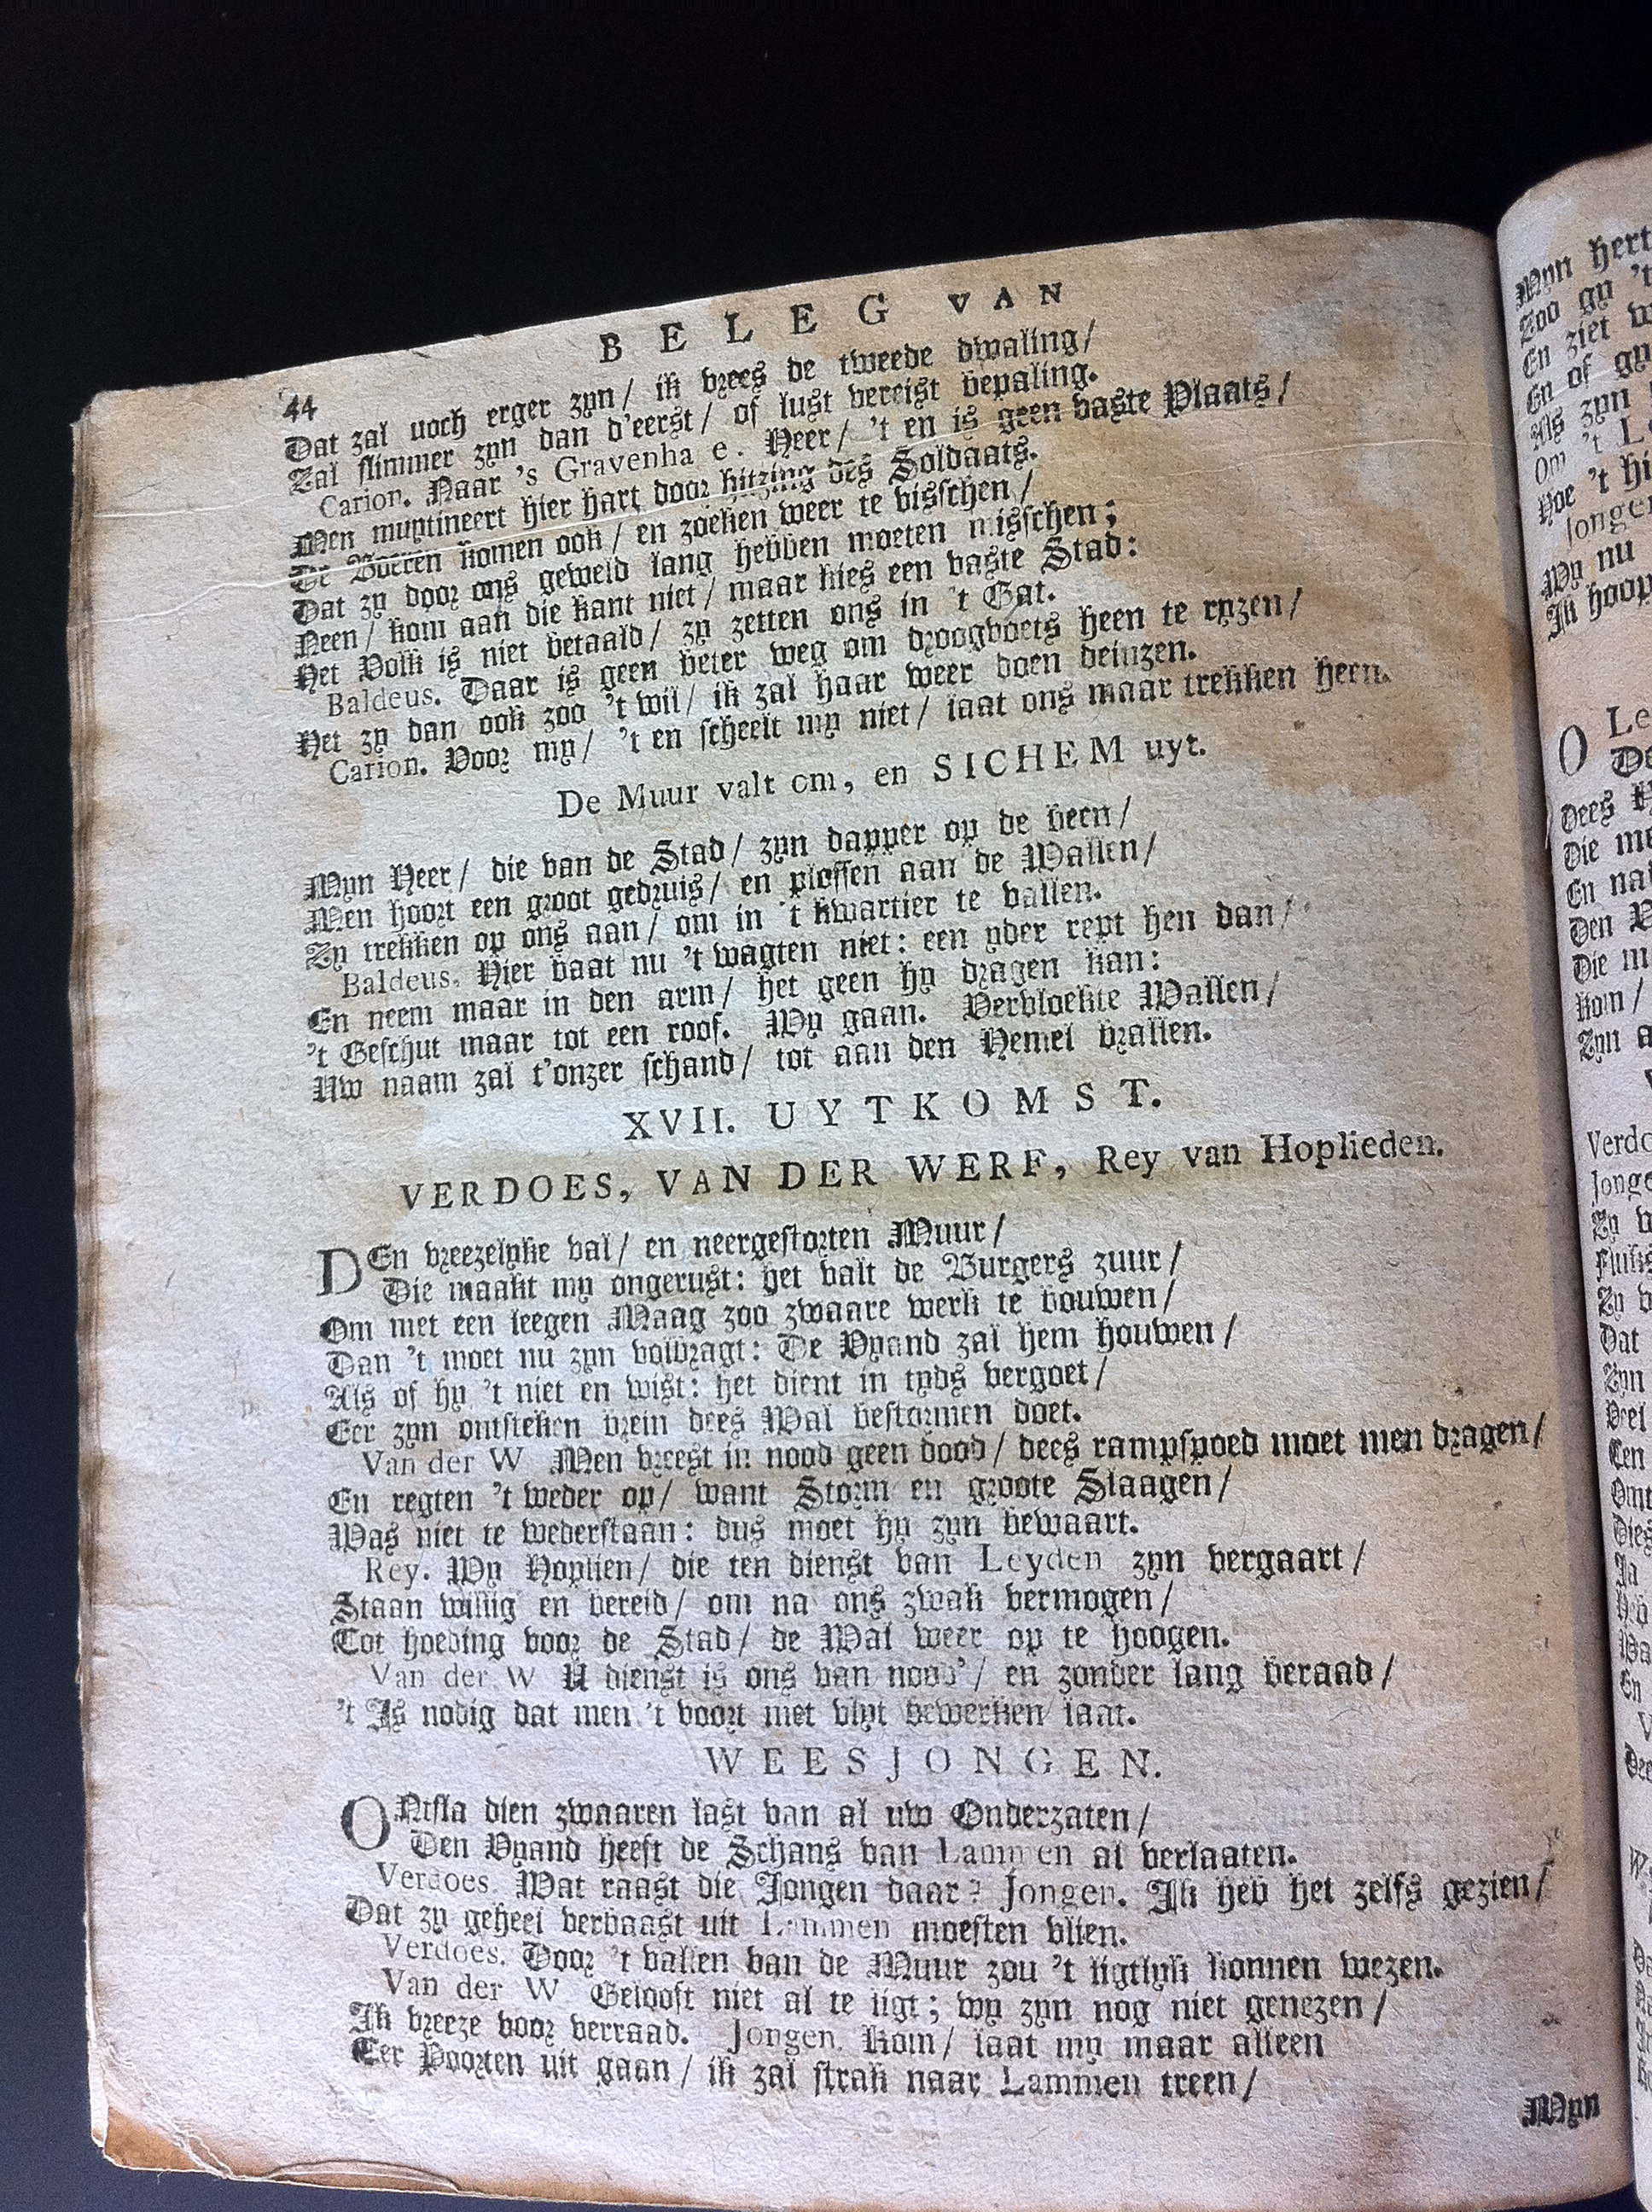 44 BELEG VAN
Dat zal noch erger zyn / ik vrees de tweede dwaling /
Zal slimmer zyn dan d'eerst / of lust vereist bepaling.
Carion. Naar 's Gravenha e. Heer / 't en is geen vaste Plaats /
Men muytineert hier hart door hitzing des Soldaats.
De Boeren komen ook / en zoeken weer te visschen /
Dat zy door ons geweld lang hebben moeten misschen;
Neen / kom aan die kant niet / maar kies een vaste Stad:
Het Volk is niet betaald / zy zetten ons in 't Gat.
Baldeus. Daar is geen beter weg om droogvoets heen te ryzen /
Het zy dan ook zoo 't wil / ik zal haar weer doen deinzen.
Carion. Voor my / 't en scheelt my niet / laat ons maar trekken heen.
De Muur valt om, en SICHEM uyt.
Myn Heer / die van de Stad / zyn dapper op de been /
Men hoort een groot gedruis / en ploffen aan de Wallen /
Zy trekken op ons aan / om in 't kwartier te vallen.
Baldeus. Hier baat nu 't wagten niet: een yder rept hen dan /
En neem maar in den arm / het geen hy dragen kan:
't Geschut maar tot een roof. Wy gaan. Vervloekte Wallen /
Uw naam zal t'onzer schand / tot aan den Hemel brallen.
XVII. UYTKOMST.
VERDOES, VAN DER WERF, Rey van Hoplieden.
DEn vreezelyke val / en neergestorten Muur /
Die maakt my ongerust: het valt de Burgers zuur /
Om met een leegen Maag zoo zwaare werk te bouwen /
Dan 't moet nu zyn volbragt: De Vyand zal hem houwen /
Als of hy 't niet en wist: het dient in tyds vergoet /
Eer zyn ontsteken brein dees Wal bestormen doet.
Van der W Men vreest in nood geen dood / dees rampspoed moet men dragen /
En regten 't weder op / want Storm en groote Slaagen /
Was niet te wederstaan: dus moet hy zyn bewaart.
Rey. Wy Hoplien / die ten dienst van Leyden zyn vergaart /
Staan willig en bereid / om na ons zwak vermogen /
Tot hoeding voor de Stad / de Wal weer op te hoogen.
Van der W U dienst is ons van nood' / en zonder lang beraad /
't Is nodig dat men 't voort met vlyt bewerken laat.
WEESJONGEN.
ONtsla dien zwaaren last van al uw Onderzaten /
Den Vyand heeft de Schans van Lammen al verlaaten.
Verdoes. Wat raast die Jongen daar? Jongen. Ik heb het zelfs gezien /
Dat zy geheel verbaast uit Lammen moesten vlien.
Verdoes. Door 't vallen van de Muur zou 't ligtlyk konnen wezen.
Van der W Gelooft niet al te ligt; wy zyn nog niet genezen /
Ik vreeze voor verraad. Jongen. Kom / laat my maar alleen
Eer Poorten uit gaan / ik zal strak naar Lammen treen /
Myn